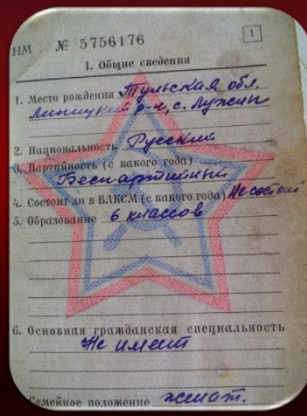 НМ № 5756176 1
1. Общие сведения
1. Место рождения Тульская обл.
Липицкий р-н, с. Лужны
2. Национальность Русский
3. Партийность (с какого года)
Беспартийный
4. Состоит ли в ВЛКСМ (с какого года) Не состоит
5. Образование 6 классов
6. Основная гражданская специальность
Не имеет
Семейное положение женат.